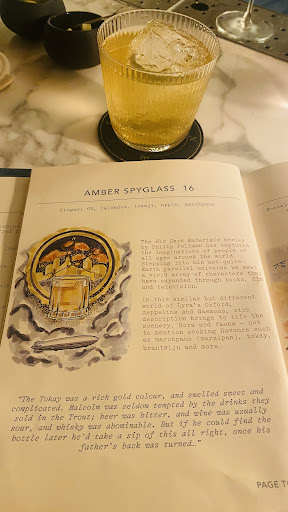 AMBER SPYGLASS 16
The His Dark Materials series
by Philip Pullman has captured
the imaginations of people of
all ages around the world.
Stepping into its not-quite-
Earth parallel universe we meet
a rich array of characters that
have expanded through books, film
and television.
In this similar but different
world of Lyra's Oxford,
zeppelins and daemons, rich
description brings to life the
scenery, flora and fauna – not
to mention evoking flavours such
as marchpane (marzipan), tokay,
brantwijn and more.
"The Tokay was a rich gold colour, and smelled sweet and
complicated. Malcolm was seldom tempted by the drinks they
sold in the Trout; beer was bitter, and wine was usually
sour, and whisky was abominable. But if he could find the
bottle later he'd take a sip of this all right, once his
father's back was turned…"
PAGE